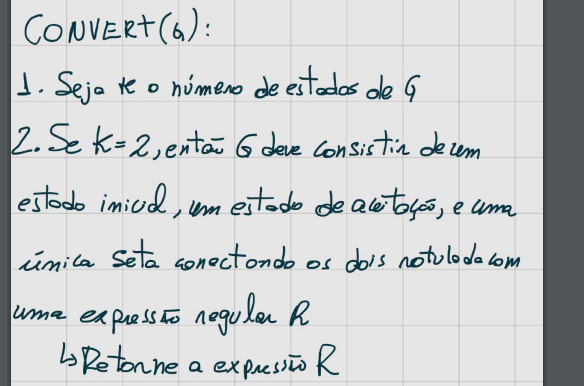 CONVERT(G):
1. Seja k o número de estados de G
2. Se k=2, então G deve consistir de um
estado inicial, um estado de aceitação, e uma
única seta conectando os dois rotulada com
uma expressão regular R
↳ Retorne a expressão R